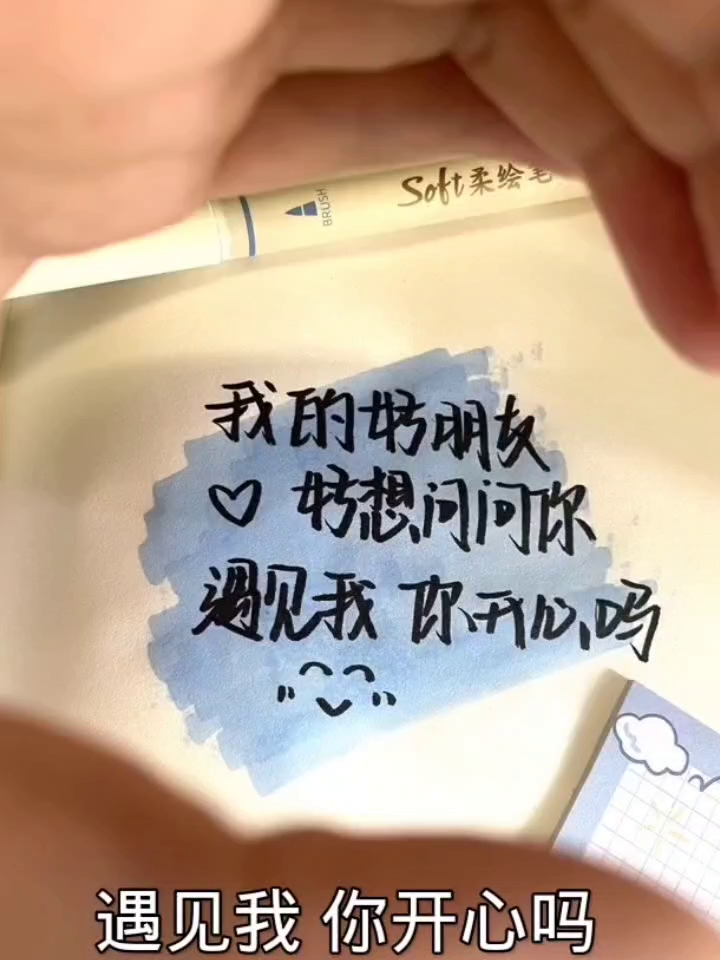 BRUSH
Soft柔绘笔
我的好朋友
♡ 好想问问你
遇见我 你开心吗
遇见我 你开心吗